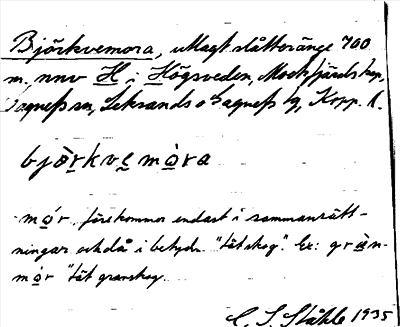 Björkvemora, utlagt slåtteränge 700
m, nnv H i Högsveden, Mockfjärds kpn,
Gagnefs sn, Leksands o Gagnefs tg, Kopp. l.
björkvemòra
-mór förekommer endast i sammansätt-
ningar och då i betyd. "tät skog". Ex: gràn-
mór "tät granskog.
C. I. Ståhle 1935